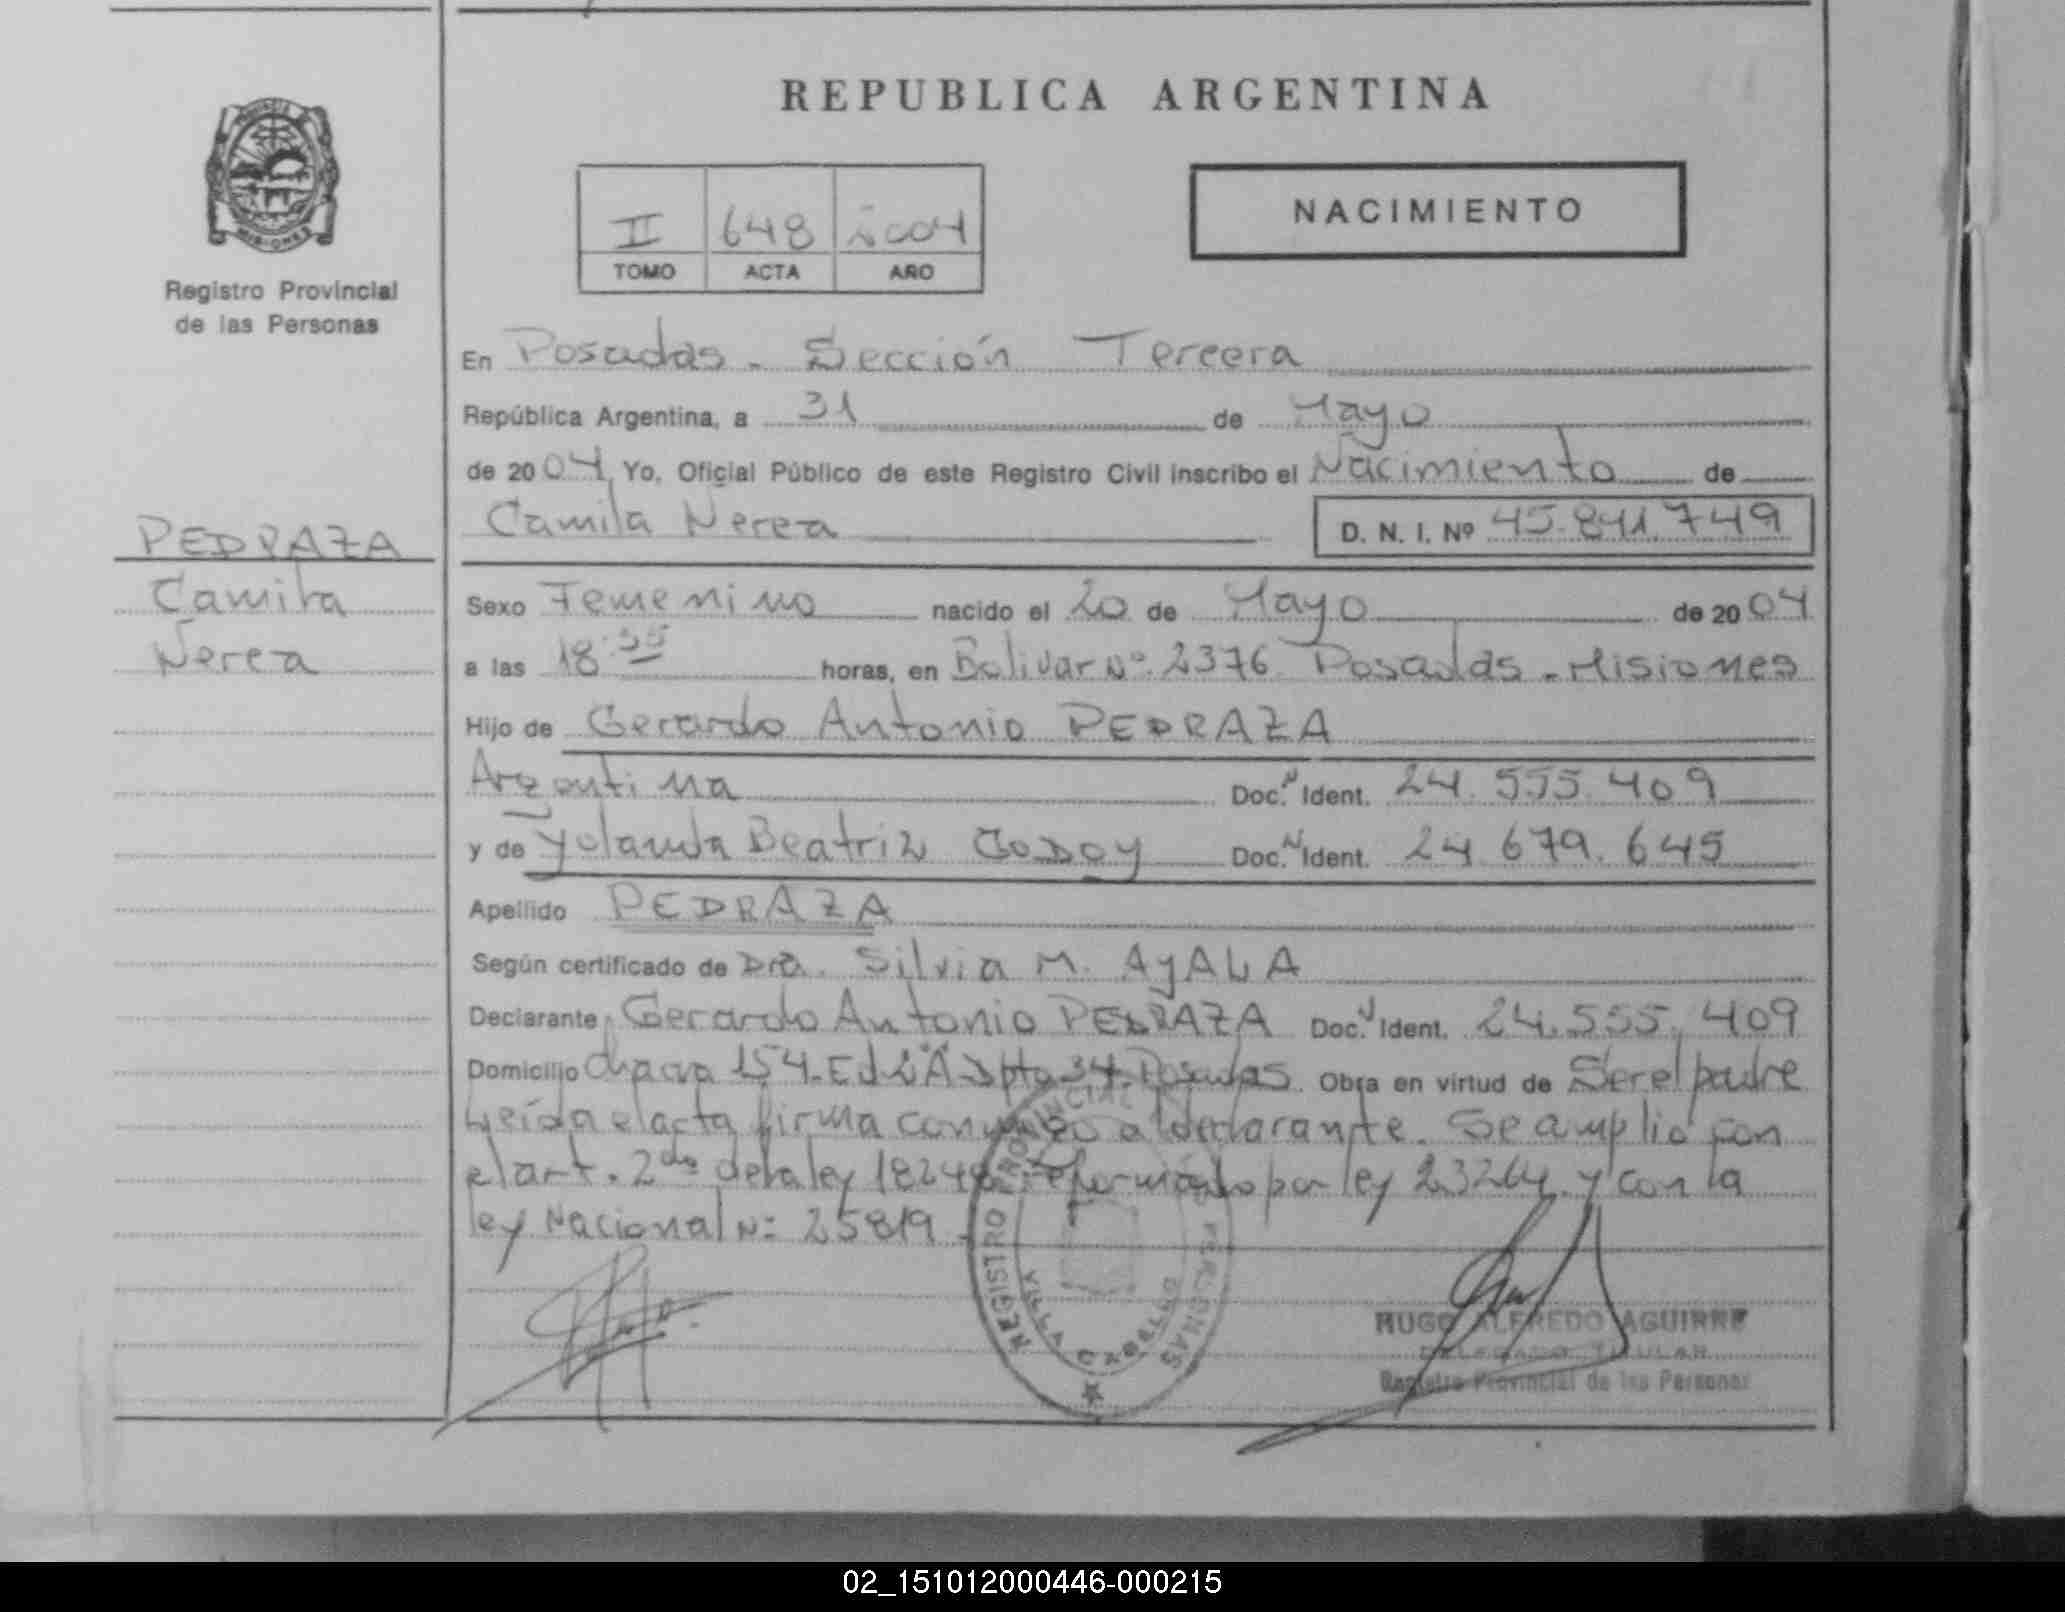 REPUBLICA ARGENTINA
PROVINCIA
MISIONES
Registro Provincial
de las Personas
NACIMIENTO
II 648 2004
TOMO ACTA AÑO
En Posadas - Sección Tercera
República Argentina, a 31 de Mayo
de 2004 Yo, Oficial Público de este Registro Civil inscribo el Nacimiento de
Camila Nerea D. N. I. Nº 45.841.749
PEDRAZA
Camila
Nerea
Sexo Femenino nacido el 20 de Mayo de 2004
a las 18:55 horas, en Bolivar Nº 2376 Posadas - Misiones
Hijo de Gerardo Antonio PEDRAZA
Argentina Doc. N Ident. 24.555.409
y de Yolanda Beatriz GODOY Doc. N Ident. 24.679.645
Apellido PEDRAZA
Según certificado de Dra. Silvia M. AyALA
Declarante Gerardo Antonio PEDRAZA Doc. N Ident. 24.555.409
Domicilio chacra 154. Dpto 34. Posadas. Obra en virtud de Ser el padre
Leída el acta firma conmigo el declarante. Se amplio con
el art. 2do de la ley 18248 reformado por ley 23264 y con la
ley Nacional Nº: 25819.
REGISTRO PROVINCIAL DE LAS PERSONAS
VILLA CABELLO
HUGO ALFREDO AGUIRRE
DELEGADO TITULAR
Registro Provincial de las Personas
02_151012000446-000215